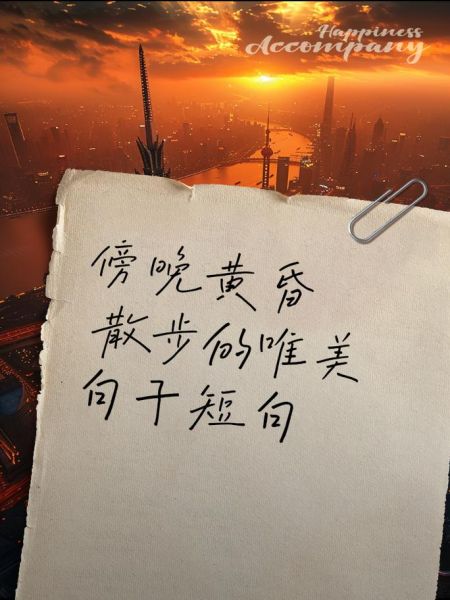 Happiness
Accompany
傍晚黄昏
散步的唯美
句子短句